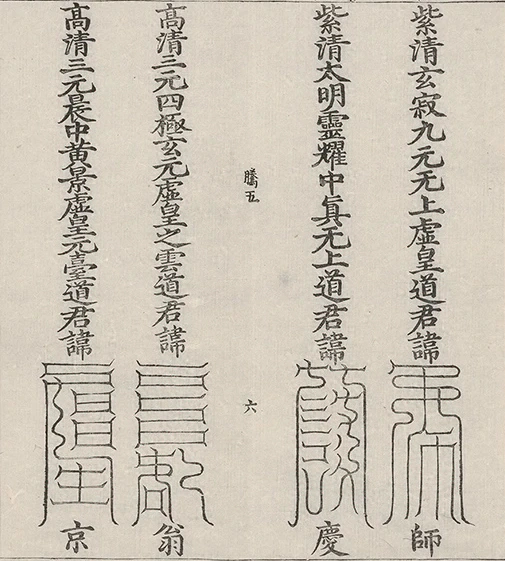 紫清玄寂九元无上虛皇道君諱
師
紫清太明靈耀中真无上道君諱
慶
騰五
六
高清三元四極玄元虛皇之雲道君諱
翁
高清三元晨中黄景虛皇元臺道君諱
京